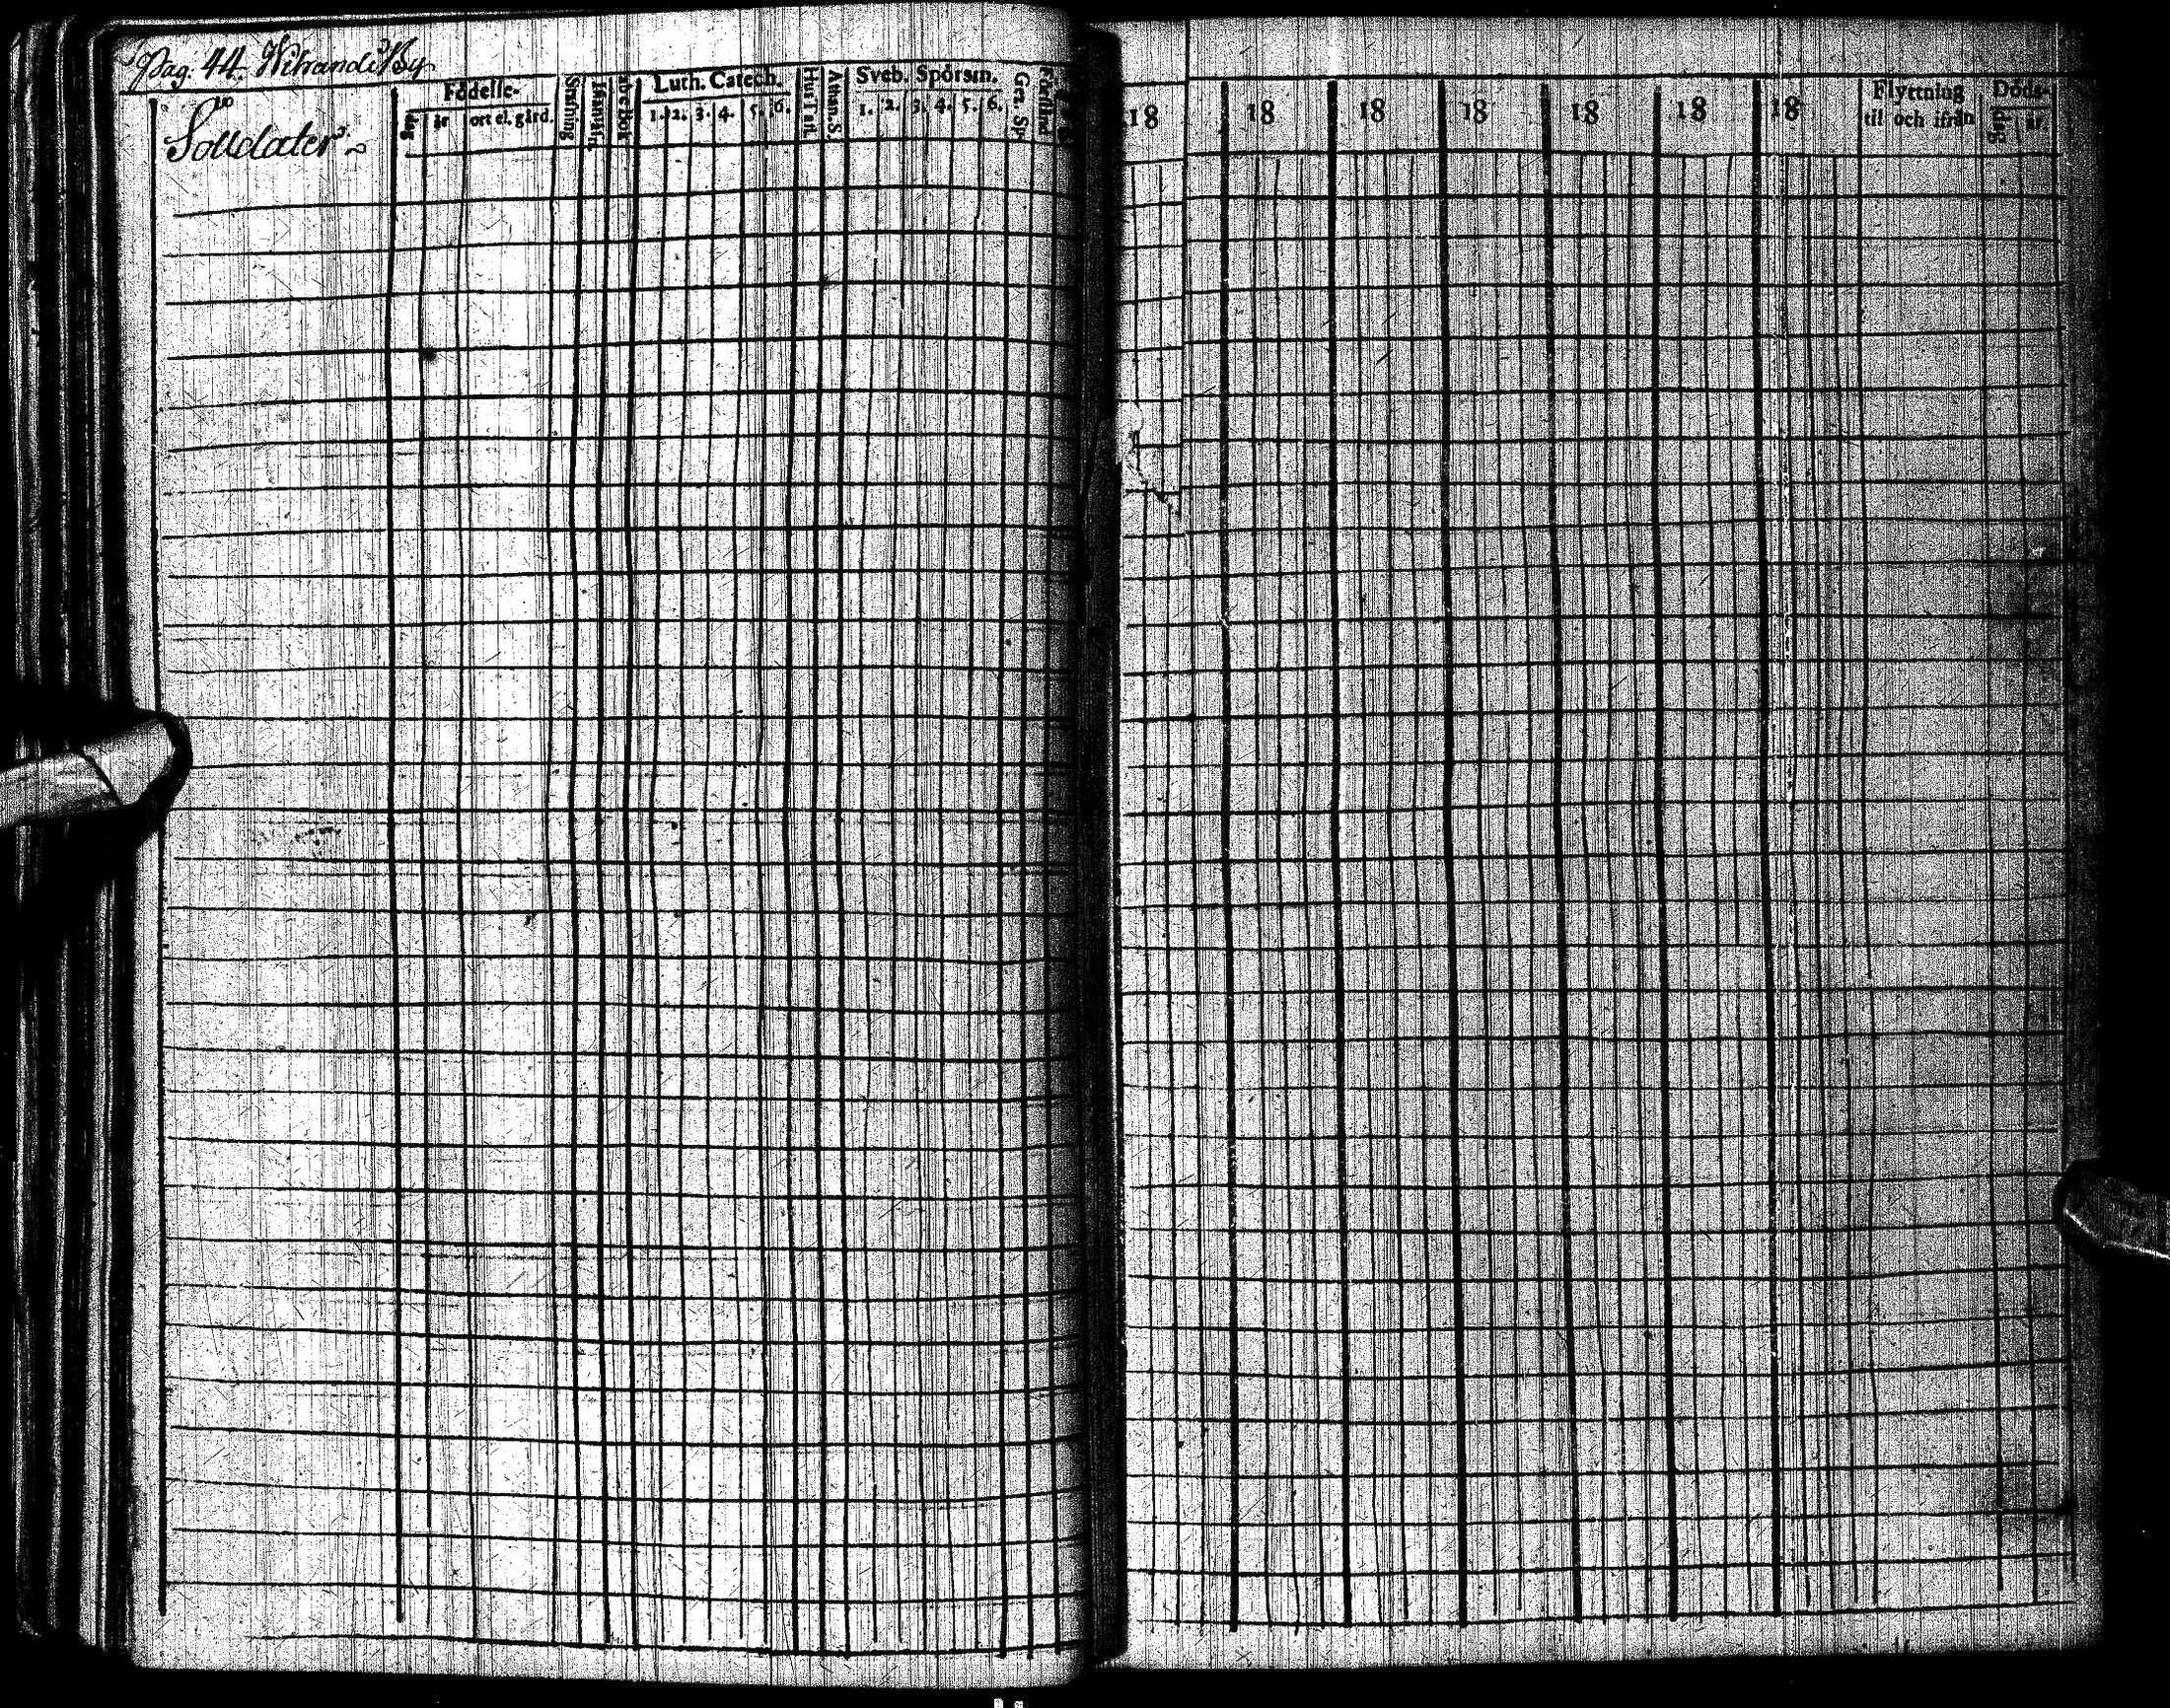 Pag: 44. Wihandi By
Solldater
Födelse-
dag
år
ort el. gård.
Läsning
abc Bok
Luth. Catech.
1. 2. 3. 4. 5. 6.
Hus Tafl.
Athan. S.
Sveb. Spörsm.
1. 2. 3. 4. 5. 6.
Gra. Sp.
Förstånd
18 18 18 18 18 18 18
Flyttning
til och ifrån
Döds-
dag
år.